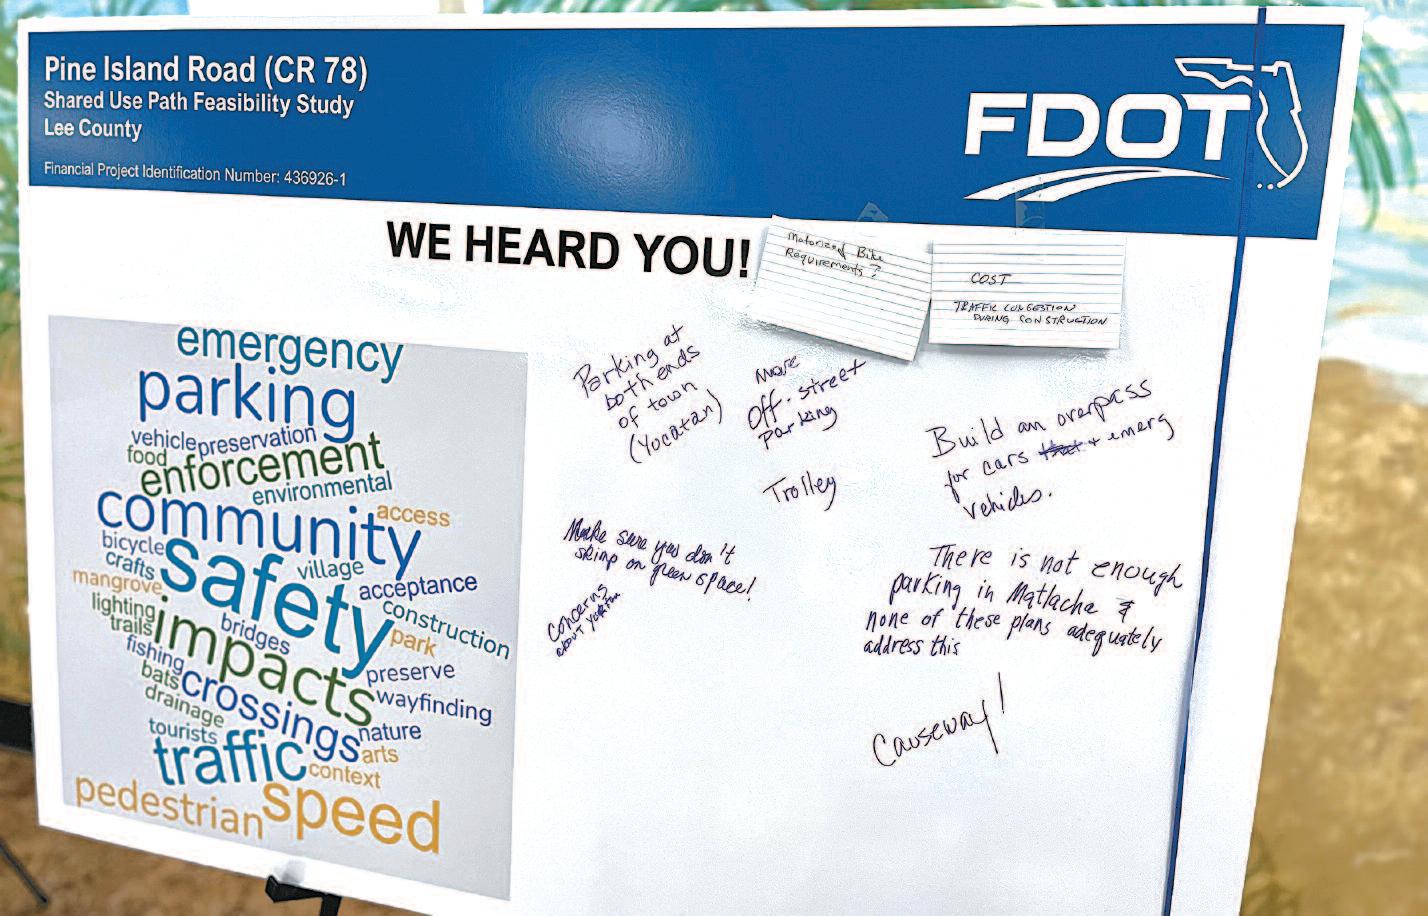 Pine Island Road (CR 78)
Shared Use Path Feasibility Study
Lee County
Financial Project Identification Number: 436926-1
FDOT
WE HEARD YOU!
Motorized Bike
Requirements?
COST
TRAFFIC CONGESTION
DURING CONSTRUCTION
emergency
parking
vehicle preservation
food
enforcement
environmental
community
access
bicycle
safety
crafts
village
acceptance
mangrove
construction
lighting
impacts
bridges
park
trails
fishing
preserve
bats
crossings
wayfinding
drainage
nature
tourists
traffic
arts
context
pedestrian
speed
Parking at
both ends
of town
(Yucatan)
More
Off-street
Parking
Trolley
Build an overpass
for cars + emerg
vehicles.
Make sure you don't
skimp on green space!
Concerns
about
There is not enough
parking in Matlacha &
none of these plans adequately
address this
Causeway!